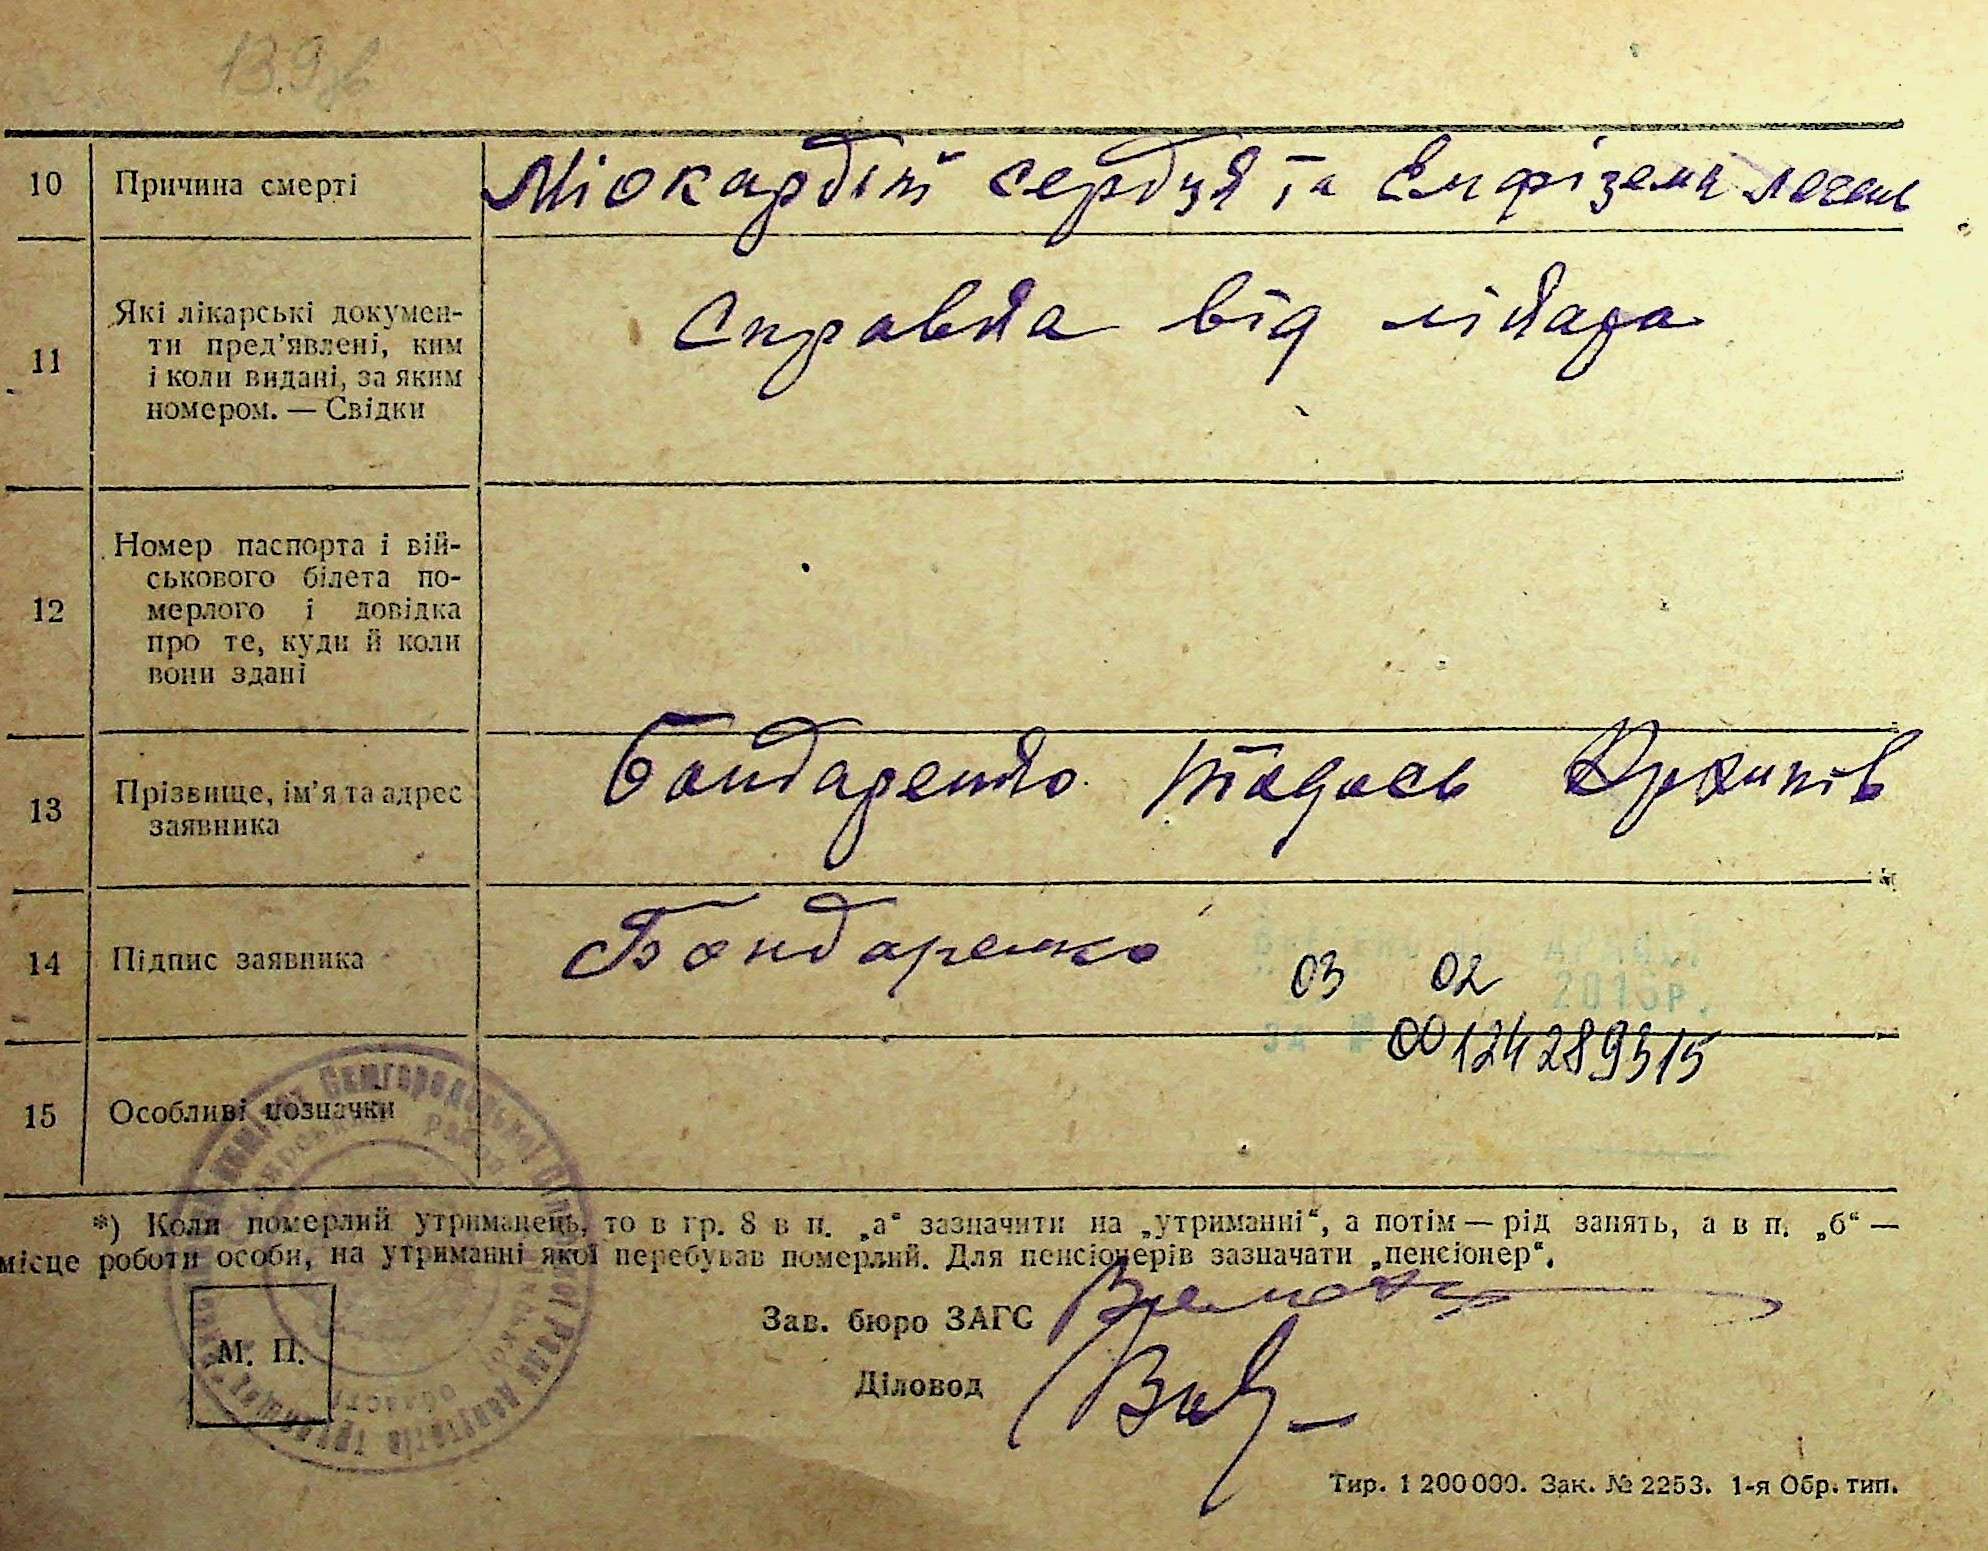 13.9
10 Причина смерті Міокардіт сердця та Емфізема легень
11 Які лікарські докумен-
ти пред'явлені, ким
і коли видані, за яким
номером. — Свідки
Справка від лікара
12 Номер паспорта і вій-
ськового білета по-
мерлого і довідка
про те, куди й коли
вони здані
13 Прізвище, ім'я та адрес
заявника
Бондаренко Тодось Архипів
14 Підпис заявника Бондаренко
03 02 2016р.
За № 00124289315
15 Особливі позначки
*) Коли померлий утриманець, то в гр. 8 в п. „а“ зазначити на „утриманні“, а потім — рід занять, а в п. „б“ —
місце роботи особи, на утриманні якої перебував померлий. Для пенсіонерів зазначати „пенсіонер“.
Зав. бюро ЗАГС
М. П.
Діловод
Тир. 1 200 000. Зак. № 2253. 1-я Обр. тип.